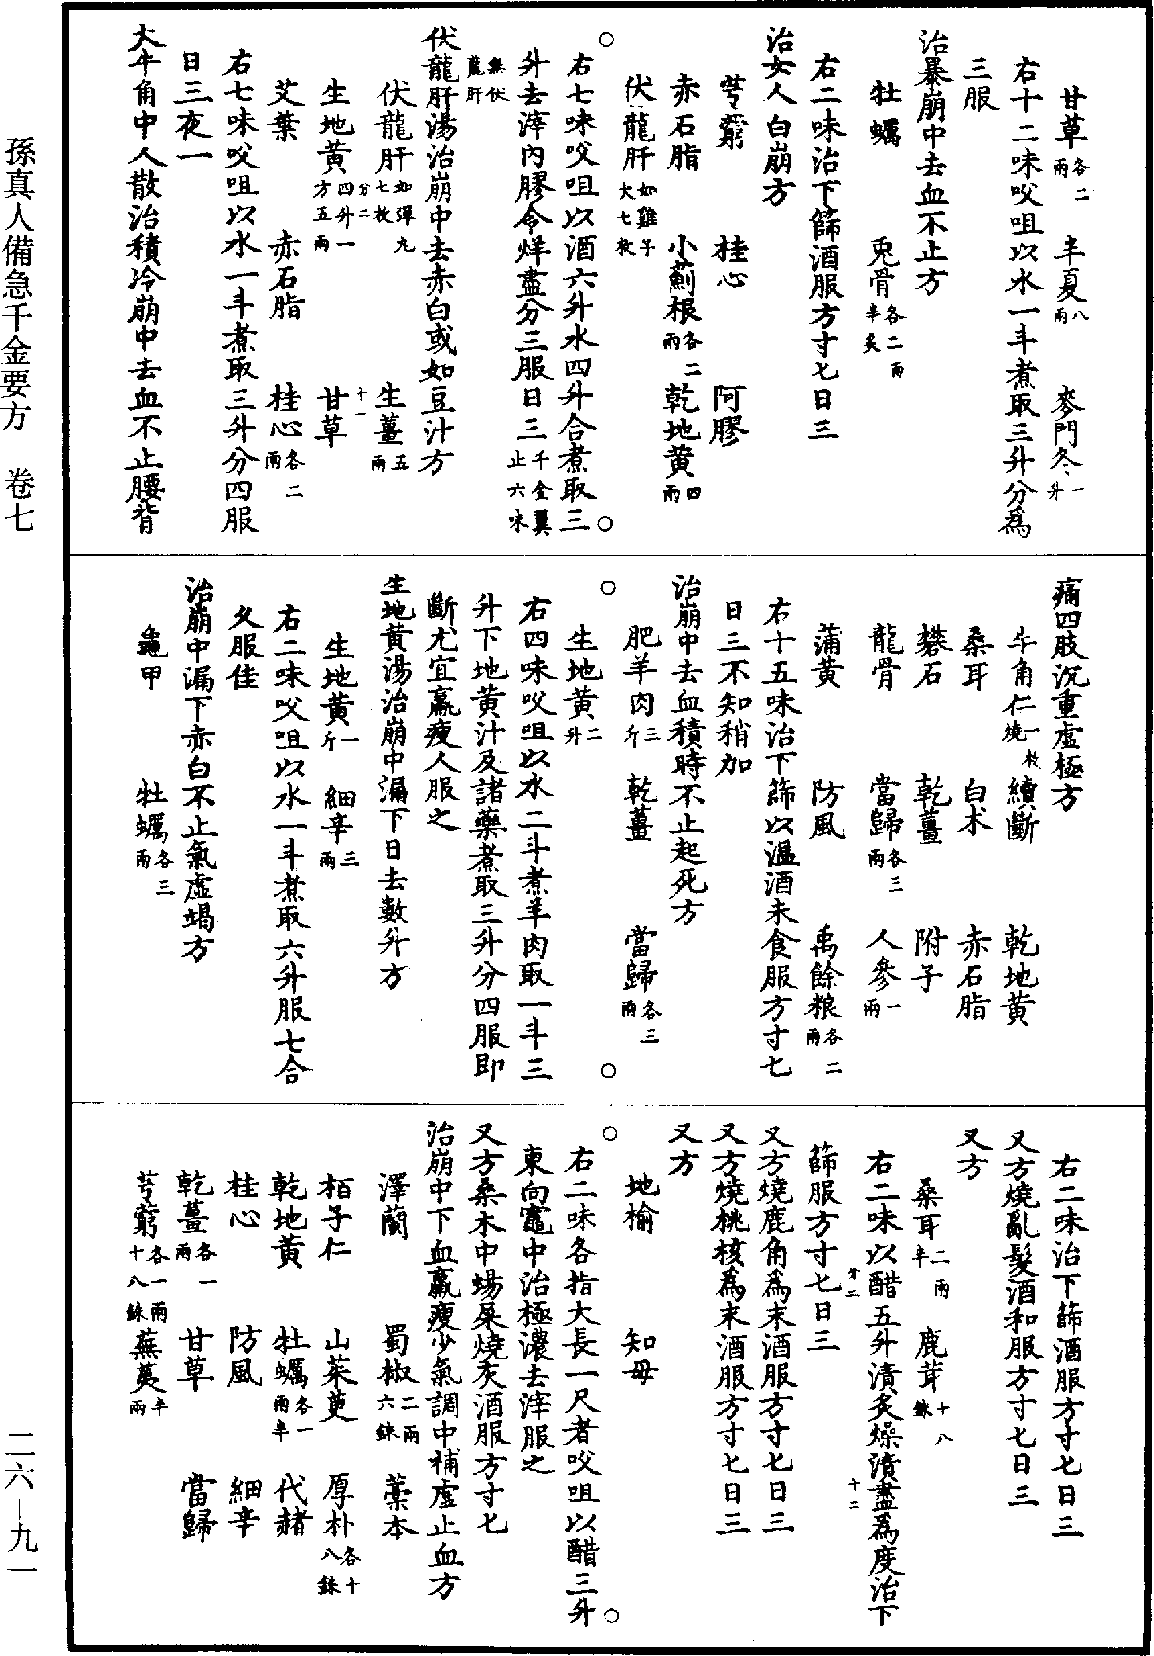 甘草各二兩　半夏八兩　麥門冬一升
右十二味㕮咀以水一斗煮取三升分爲
三服
治暴崩中去血不止方
牡蠣　兎骨各二兩半炙
右二味治下篩酒服方寸匕日三
治女人白崩方
芎藭　桂心　阿膠
赤石脂　小薊根各二兩　乾地黃四兩
伏龍肝如雞子大七枚
右七味㕮咀以酒六升水四升合煮取三
升去滓內膠令烊盡分三服日三千金翼止六味
無伏龍肝
伏龍肝湯治崩中去赤白或如豆汁方
伏龍肝如彈丸七枚　生薑五兩
生地黃四升一方五兩　甘草
艾葉　赤石脂　桂心各二兩
右七味㕮咀以水一斗煮取三升分四服
日三夜一
大牛角中人散治積冷崩中去血不止腰背
痛四肢沉重虛極方
牛角仁一枚燒　續斷　乾地黃
桑耳　白朮　赤石脂
礬石　乾薑　附子
龍骨　當歸各三兩　人參一兩
蒲黃　防風　禹餘粮各二兩
右十五味治下篩以溫酒未食服方寸匕
日三不知稍加
治崩中去血積時不止起死方
肥羊肉三斤　乾薑　當歸各三兩
生地黃二升
右四味㕮咀以水二斗煮羊肉取一斗三
升下地黃汁及諸藥煮取三升分四服即
斷尤宜羸瘦人服之
生地黃湯治崩中漏下日去數升方
生地黃一斤　細辛三兩
右二味㕮咀以水一斗煮取六升服七合
久服佳
治崩中漏下赤白不止氣虛竭方
龜甲　牡蠣各三兩
右二味治下篩酒服方寸匕日三
又方燒亂髮酒和服方寸匕日三
又方
桑耳二兩半　鹿茸十八銖
右二味以醋五升漬炙燥漬盡爲度治下
篩服方寸匕日三
又方燒鹿角爲末酒服方寸匕日三
又方燒桃核爲末酒服方寸匕日三
又方
地榆　知母
右二味各指大長一尺者㕮咀以醋三升
東向竈中治極濃去滓服之
又方桑木中蝎屎燒灰酒服方寸匕
治崩中下血羸瘦少氣調中補虛止血方
澤蘭　蜀椒二兩六銖　藁本
栢子仁　山茱萸　厚朴各十八銖
乾地黃　牡蠣各一兩半　代赭
桂心　防風　細辛
乾薑各一兩　甘草　當歸
芎藭各一兩十八銖　蕪荑半兩
孫真人備急千金要方　卷七
二六—九一